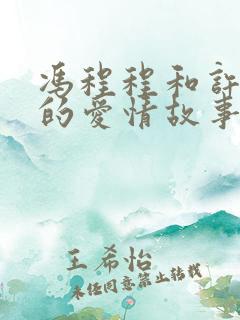 馮程程和許
的愛情故事
王希怡
未经同意禁止转载